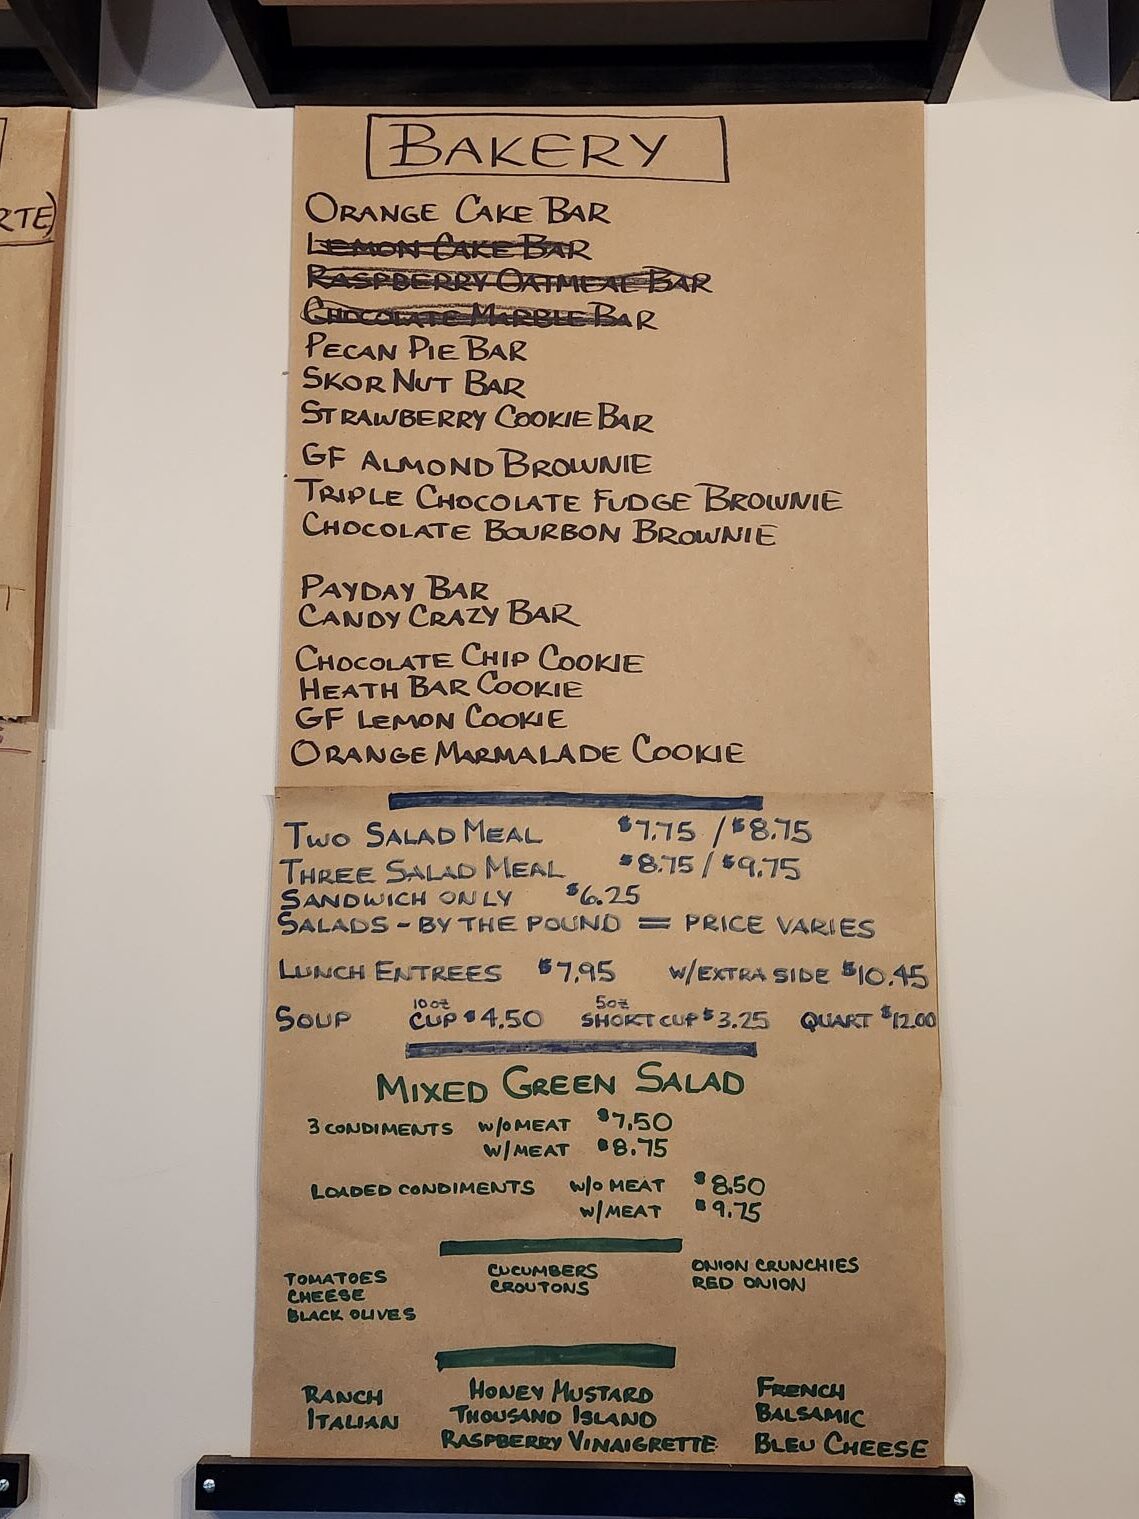 RTE)
BAKERY
ORANGE CAKE BAR
LEMON CAKE BAR
RASPBERRY OATMEAL BAR
CHOCOLATE MARBLE BAR
PECAN PIE BAR
SKOR NUT BAR
STRAWBERRY COOKIE BAR
GF ALMOND BROWNIE
TRIPLE CHOCOLATE FUDGE BROWNIE
CHOCOLATE BOURBON BROWNIE
PAYDAY BAR
CANDY CRAZY BAR
CHOCOLATE CHIP COOKIE
HEATH BAR COOKIE
GF LEMON COOKIE
ORANGE MARMALADE COOKIE
TWO SALAD MEAL $7.75 / $8.75
THREE SALAD MEAL $8.75 / $9.75
SANDWICH ONLY $6.25
SALADS - BY THE POUND = PRICE VARIES
LUNCH ENTREES $7.95 W/EXTRA SIDE $10.45
SOUP 10 oz CUP $4.50 5oz SHORT CUP $3.25 QUART $12.00
MIXED GREEN SALAD
3 CONDIMENTS W/O MEAT $7.50
W/MEAT $8.75
LOADED CONDIMENTS W/O MEAT $8.50
W/MEAT $9.75
TOMATOES
CHEESE
BLACK OLIVES
CUCUMBERS
CROUTONS
ONION CRUNCHIES
RED ONION
RANCH
ITALIAN
HONEY MUSTARD
THOUSAND ISLAND
RASPBERRY VINAIGRETTE
FRENCH
BALSAMIC
BLEU CHEESE